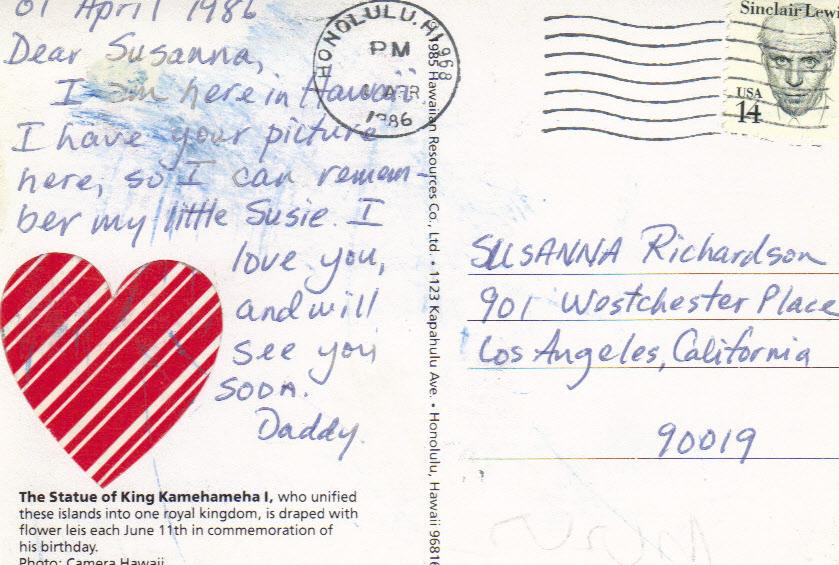 01 April 1986
Dear Susanna,
I am here in Hawaii
I have your picture
here, so I can remem-
ber my little Susie. I
love you,
and will
see you
soon.
Daddy.
The Statue of King Kamehameha I, who unified
these islands into one royal kingdom, is draped with
flower leis each June 11th in commemoration of
his birthday.
Photo: Camera Hawaii
HONOLULU, HI 968
PM
1 APR
1986
1985 Hawaiian Resources Co., Ltd. • 1123 Kapahulu Ave. • Honolulu, Hawaii 96816
Sinclair Lewis
USA
14
SUSANNA Richardson
901 Westchester Place
Los Angeles, California
90019